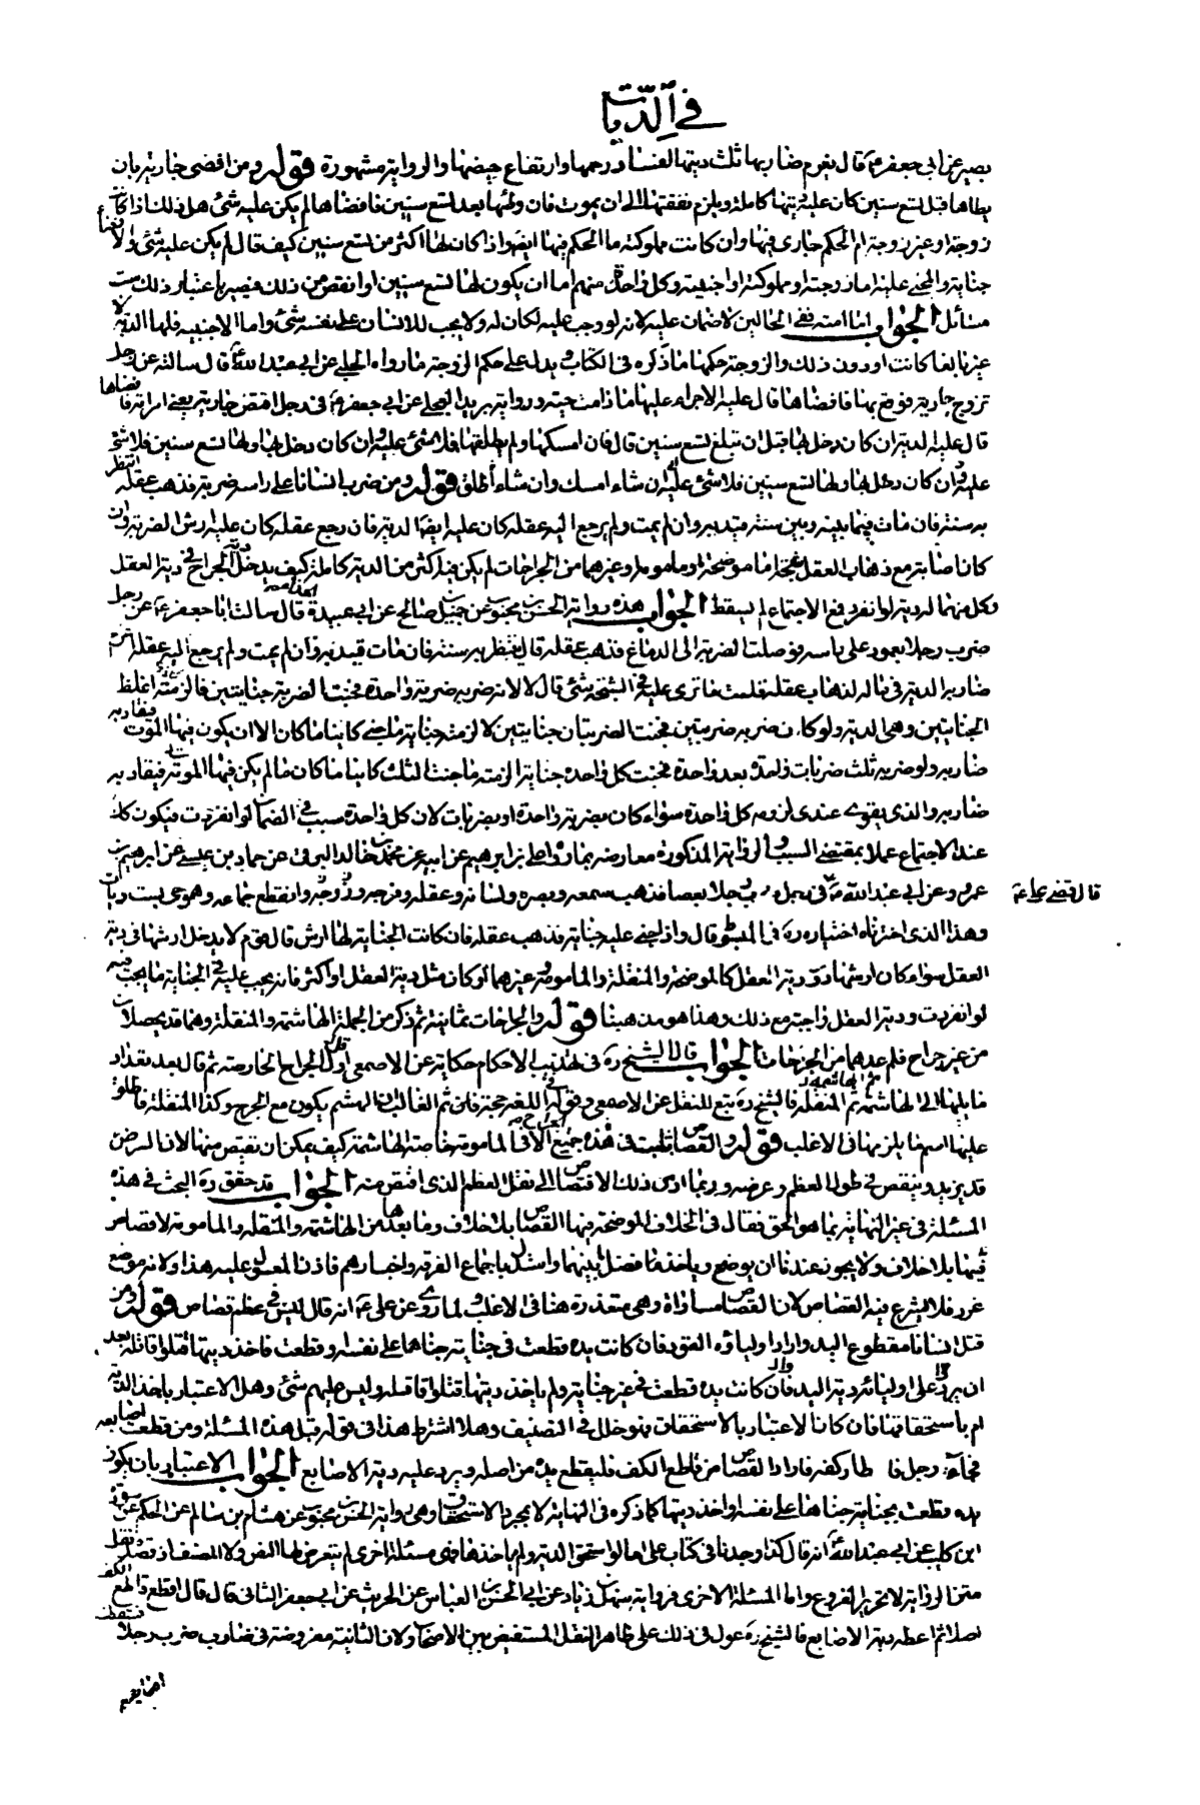 في الديات
بصير عن ابي جعفر ع قال يغرم ضاربها ثلث ديتها لفساد رحمها وارتفاع حيضها والرواية مشهورة قوله ومن افضى جارية بان
يطاها قبل تسع سنين كان عليه ديتها كاملة ويلزم نفقتها الى ان يموت فان وطئها بعد تسع سنين فافضاها لم يكن عليه شئ هل ذلك اذا كانت
زوجة او غير زوجة ام الحكم جارى فيها وان كانت مملوكته ما الحكم فيها ايضا واذا كان لها اكثر من تسع سنين كيف قال لم يكن عليه شئ ولا
جناية والمجنى عليه اما زوجته او مملوكته او اجنبية وكل واحدة منهم اما ان يكون لها تسع سنين او انقص من ذلك فيصير باعتبار ذلك ست
مسائل الجواب اما امته ففي الحالين لا ضمان عليه لانه لو وجب عليه لكان له ولا يجب للانسان على نفسه شئ واما الاجنبية فلها الدية
عزبا بالغا كانت او دون ذلك والزوجة حكمها ما ذكره فى الكتاب يدل على حكم الزوجة ما رواه الحلبى عن ابى عبد الله ع قال سالته عن رجل
تزوج جارية فوقع بها فافضاها قال عليه الاجراء عليها ما دامت حية ورواية بريد العجلى عن ابى جعفر ع فى رجل اقتض جارية يعنى امراته فافضاها
قال عليه الدية ان كان دخل بها قبل ان تبلغ تسع سنين قال فان امسكها ولم يطلقها فلا شئ عليه وان كان دخل بها ولها تسع سنين فلا شئ
عليه وان كان دخل بها ولها تسع سنين فلا شئ عليه ان شاء امسك وان شاء طلق قوله ومن ضرب انسانا على راسه ضربة فذهب عقله انتظر
به سنة فان مات فيما بينه وبين سنة قيد به وان لم يمت ولم يرجع اليه عقله كان عليه ايضا الدية فان رجع عقله كان عليه ارش الضربة وان
كان اصابه مع ذهاب العقل شجة اما موضحة او مامومة او غيرهما من الجراحات لم يكن فيه اكثر من الدية كاملة كيف يدخل دية الجراح فى دية العقل
وكل منهما له دية لو انفرد فمع الاجتماع لم يسقط احدهما الجواب هذه رواية الحسن بن محبوب عن جميل بن صالح عن ابى عبيدة قال سالت ابا جعفر ع عن رجل
ضرب رجلا بعمود على راسه فوصلت الضربة الى الدماغ فذهب عقله قال ينتظر به سنة فان مات قيد به وان لم يمت ولم يرجع اليه عقله اغرم
ضاربه الدية فى ماله لذهاب عقله قلت فما ترى عليه فى الشجة شئ قال لا لانه ضربه ضربة واحدة فجنت الضربة جنايتين فالزمته اغلظ
الجنايتين وهى الدية ولو كان ضربه ضربتين فجنت الضربتان جنايتين لالزمته جناية ما جنى كائنا ما كان الا ان يكون فيها الموت فيقاد به
ضاربه ولو ضربه ثلث ضربات واحدة بعد واحدة فجنت كل واحدة جناية الزمته ما جنت الثلث كائنا ما كان ما لم يكن فيها الموت فيقاد به
ضاربه والذى يقوى عندى لزوم كل واحدة سواء كان بضربة واحدة او بضربات لان كل واحدة سبب فى الضمان لو انفردت فيكون كك
عند الاجتماع عملا بمقتضى السبب والرواية المذكورة معارضة بما رواه على بن ابراهيم عن ابيه عن محمد بن خالد البرقى عن حماد بن عيسى عن ابراهيم بن
عمر وعن ابى عبد الله ع فى رجل ضرب رجلا بعصا فذهب سمعه وبصره ولسانه وعقله وفرجه وانقطع جماعه وهو حى بست ديات
قال قضى على ع
وهذا الذى اخترناه اختياره ره فى المبسوط قال واذا جنى عليه جناية فذهب عقله فان كانت الجناية لها ارش قال قوم لا يدخل ارشها فى دية
العقل سواء كان ارشها دون دية العقل كالموضحة والمنقلة والمامومة وغيرهما او كان مثل دية العقل او اكثر فانه يجب عليه فى الجناية ما يجب فيه
لو انفردت ودية العقل واجبة مع ذلك وهذا هو مذهبنا قوله والجراحات ثمانية ثم ذكر من الجملة الهاشمة والمنقلة وهما قد يحصلان
من غير جراح فلم عدهما من الجراحات الجواب قال الشيخ ره فى تهذيب الاحكام حكاية عن الاصمعى قال اول الجراح الحارصة ثم قال بعد تعداد
ما يليها الى الهاشمة ثم المنقلة فالشيخ ره تبع للنقل عن الاصمعى وقوله فى اللغة حجة فلن ثم الغالب ان الهشم يكون مع الجرح وكذا المنقلة فاطلق
عليها اسم ما يلزمها فى الاغلب قوله والقصاص ثابت فى هذه جميع الا فى المامومة خاصة الهاشمة كيف يمكن ان نقتص منها لان الرض
قد يزيد وينقص فى طول العظم وعرضه وربما ادى ذلك الاقتصاص الى نقل العظم الذى اقتص منه الجواب قد حقق ره البحث فى هذه
المسئلة فى غير النهاية بما هو الحق فقال فى الخلاف الموضحة فيها القصاص بلا خلاف وما بعدها من الهاشمة والمنقلة والمامومة لا قصاص
فيها بلا خلاف ولا يجوز عندنا ان يوضح وياخذ ما فضل بينهما واستدل باجماع الفرقة واخبارهم فاذن المعول عليه هذا ولانه موضع
غرر فلا يشرع فيه القصاص لان القصاص مساواة وهى متعذرة هنا فى الاغلب ولما روى عن على ع انه قال ليس فى عظم قصاص قوله ومن
قتل انسانا مقطوع اليد واراد اولياؤه القود فان كانت يده قطعت فى جناية جناها على نفسه او قطعت فاخذ ديتها قتلوا قاتله بعد
ان يردوا على اوليائه دية اليد فان كانت يده قطعت فى غير جناية ولم ياخذ ديتها قتلوا قاتله وليس عليهم شئ وهل الاعتبار باخذ الدية
ام باستحقاقها فان كان الاعتبار بالاستحقاق فهو خلل فى التصنيف وهلا اشترط هذا فى قوله قبل هذه المسئلة ومن قطعت اصابعه
فجاءه رجل فاطار كفه فاراد القصاص من قاطع الكف فليقطع يده من اصله ويرد عليه دية الاصابع الجواب الاعتبار بان يكون
يده قطعت بجناية جناها على نفسه او اخذ ديتها كما ذكره فى النهاية لا بمجرد الاستحقاق وهى رواية الحسن بن محبوب عن هشام بن سالم عن سورة
ابن كليب عن ابى عبد الله ع انه قال كذا وجدنا فى كتاب على ع اما لو استحق الدية ولم ياخذها فهى مسئلة اخرى لم يتعرض لها النص ولا المصنف اذ قصده نقل
متن الرواية لا تحرير الفروع واما المسئلة الاخرى فرواية سهل بن زياد عن ابى الحسن بن العباس عن الحريش عن ابى جعفر الثانى قال قال اقطع قاطع الكف
اصلا ثم اعطه دية الاصابع فالشيخ ره عول فى ذلك على ظاهر النقل المستفيض بين الاصحاب ولان الثانية مفروضة فى ضارب ضرب رجلا
اصابعه